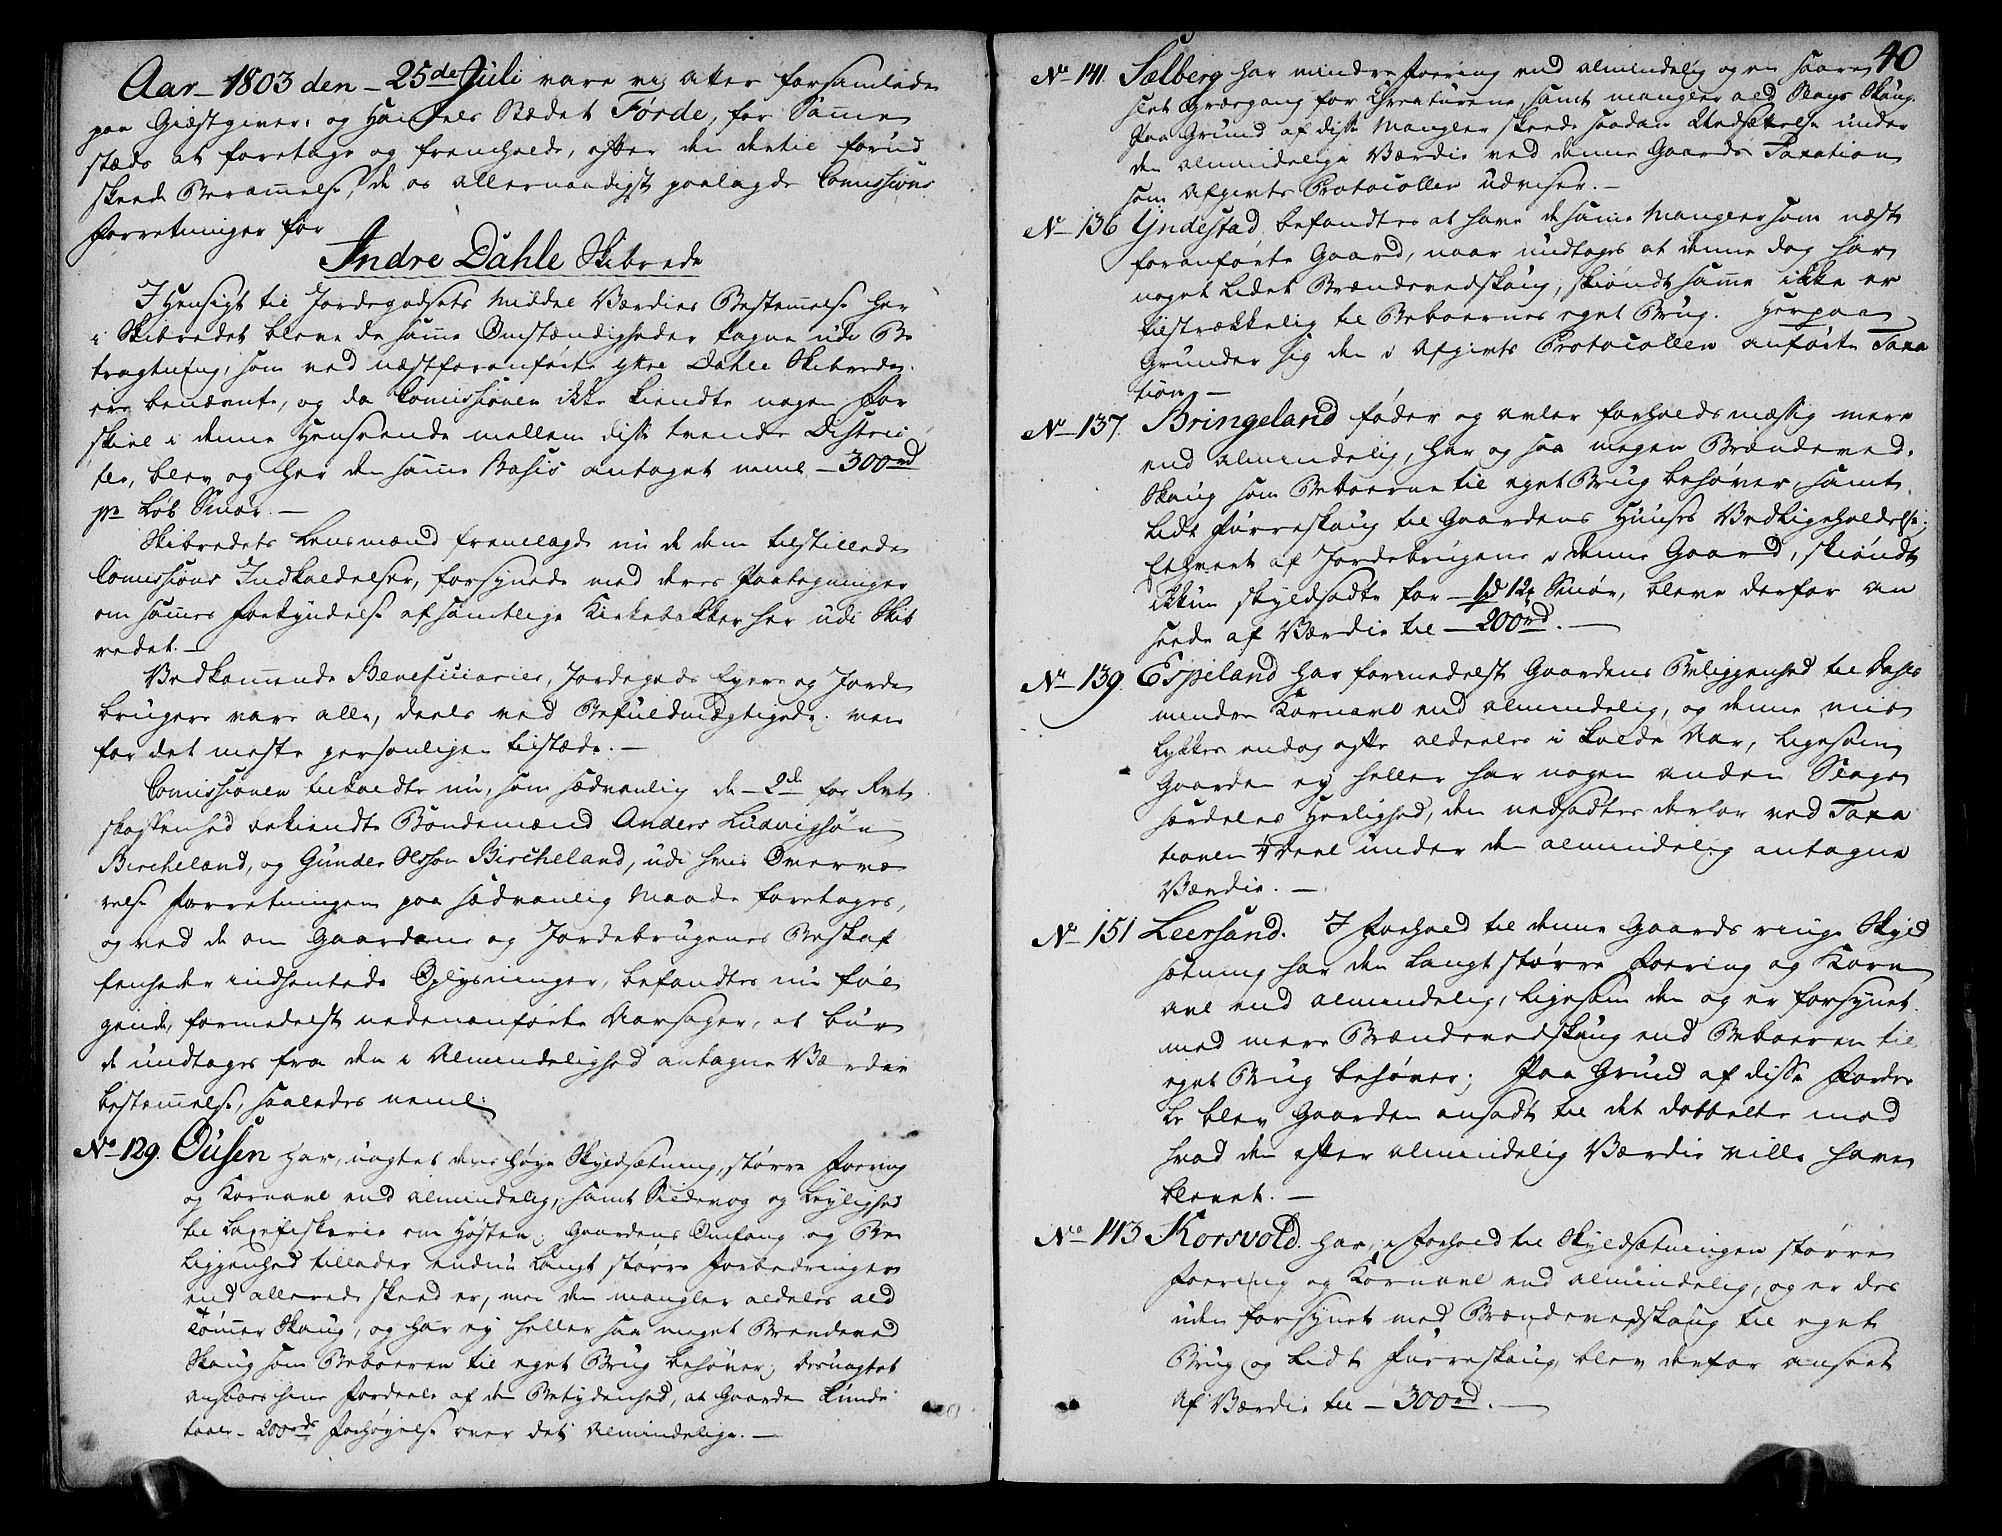 Aar 1803 den 25de Juli vare vi atter forsamlede
paa Giæstgiver- og Handels Stædet Førde, for Samme
stæds at foretage og fremholde, efter den dertil forud
skeede Beram̄else, de os allernaadigst paalagde Com̄issions
Forretninger for
Indre Dahle Skibrede
I Hensigt til Jordegodsets Middel Værdies Bestem̄else her
i Skibredet bleve de sam̄e Omstændigheder tagne udi Be
tragtning, som ved næstforanførte ytre Dahle Skibrede
ere benævnte, og da Com̄issionen ikke kiendte nogen For
skiel i denne Henseende mellem disse tvende Distric
ter, blev og her den sam̄e Basis antaget neml. 300rd
pr Løb Smør. —
Skibredets Lensmænd fremlagde nu de dem tilstillede
Com̄issions Indkaldelser, forsynede med deres Paategninger
om sam̄es Forkyndelse af samtlige Kirkebakker her udi Skib
redet. —
Vedkom̄ende Beneficiarier, Jordegods Eyere og Jorde
brugere vare alle, deels ved Befuldmægtigede, men
for det meste personligen tilstæde. —
Com̄issionen tilkaldte nu, som sædvanlig de 2de for Ret
skaffenhed bekiendte Bondemænd Anders Ludvigsøn
Bircheland, og Gunder Olsøn Bircheland, udi hvis Overvæ
relse Forretningen paa sædvanlig Maade foretages,
og ved de om Gaardene og Jordebrugenes Beskaf
fenheder indhentede Oplysninger, befandtes nu føl
gende, formedelst nedenanførte Aarsager, at bur
de undtages fra den i Almindelighed antagne Værdie
bestem̄else, saaledes neml:
No 129. Ousen har, uagtet dens høye Skyldsætning, større Foering
og Kornavl end almindelig, samt Sildevog og Leylighed
til Laxefiskerie om Høsten; Gaardens Omfang og Be
liggenhed tillader endnu langt større Forbedringer
end allerede skeed er, men den mangler aldeles ald
Tøm̄er Skaug, og har ey heller saa meget Brendeved
Skaug som Beboeren til eget Brug behøver; desuagtet
ansaaes hine Fordeele af den Betydenhed, at Gaarden kunde
taale 200rds Forhøyelse over det Almindelige. —
40
No 141. Sælberg har mindre Foering end almindelig og en saare
slet Græsgang for Creaturene, samt mangler ald Slags Skaug.
Paa Grund af disse Mangler skeede saadan Nedsættelse under
den almindelige Værdie ved denne Gaards Taxation
som Afgivts Protocollen udviser. —
No 136 Yndestad befandtes at have desam̄e Mangler som næst
foranførte Gaard, naar undtages at denne dog har
noget lidet Brændevedskaug, skiøndt sam̄e ikke er
tilstrækkelig til Beboernes eget Brug. Herpaa
Grunder sig den i Afgivts Protocollen anførte Taxa
tion. —
No 137. Bringeland føder og avler forholdsmæssig mere
end almindelig, har og saa megen Brændeved-
Skaug som Beboerne til eget Brug behøver, samt
lidt Furreskaug til Gaardens Huuses Vedligeholdelse;
Ethvert af Jordebrugene i denne Gaard, skiøndt
ikkun skyldsadte for 1pd 12 Smør, bleve derfor an
seede af Værdie til 200rd. —
No 139. Espeland har formedelst Gaardens Beliggenhed til Fields
mindre Kornavl end almindelig, og denne mis
lykkes endog ofte aldeeles i kolde Aar, ligesom
Gaarden ey heller har nogen anden Slags
særdeles Herlighed, den nedsadtes derfor ved Taxa
tionen ¼ Deel under den almindelig antagne
Værdie. —
No 151 Leersand. I Forhold til denne Gaards ringe Skyld
sætning har den langt større Foering og Korn
avl end almindelig, ligesom den og er forsynet
med mere Brændevedskaug end Beboeren til
eget Brug behøver; Paa Grund af disse Forde
le blev Gaarden ansadt til det dobbelte mod
hvad den efter almindelig Værdie ville have
blevet. —
No 143 Korsvold har, i Forhold til Skyldsætningen større
Foering og Kornavl end almindelig, og er des
uden forsynet med Brændevedskaug til eget
Brug og lidt Furreskaug, blev derfor anseet
af Værdie til 300rd. —